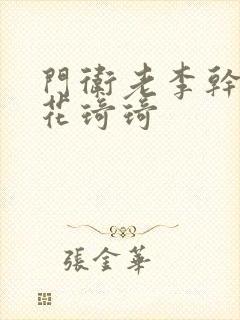 門衛老李幹
花琦琦
張金華